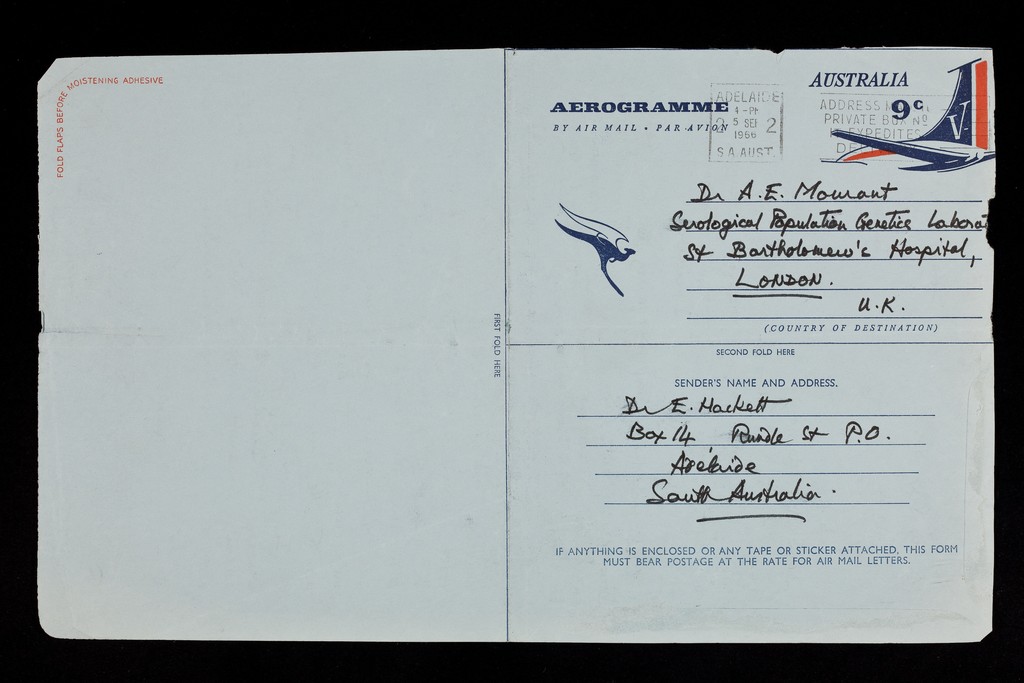 FOLD FLAPS BEFORE MOISTENING ADHESIVE
AUSTRALIA
9c
AEROGRAMME
BY AIR MAIL • PAR AVION
ADELAIDE
4-PM
2 5 SEP 2
1966
S.A. AUST.
ADDRESS
PRIVATE BOX No
EXPEDITES
DE
V
Dr A.E. Mourant
Serological Population Genetics Laborat
St Bartholomew's Hospital,
LONDON.
U.K.
(COUNTRY OF DESTINATION)
FIRST FOLD HERE
SECOND FOLD HERE
SENDER'S NAME AND ADDRESS.
Dr E. Hackett
Box 14, Rundle St P.O.
Adelaide
South Australia.
IF ANYTHING IS ENCLOSED OR ANY TAPE OR STICKER ATTACHED, THIS FORM
MUST BEAR POSTAGE AT THE RATE FOR AIR MAIL LETTERS.